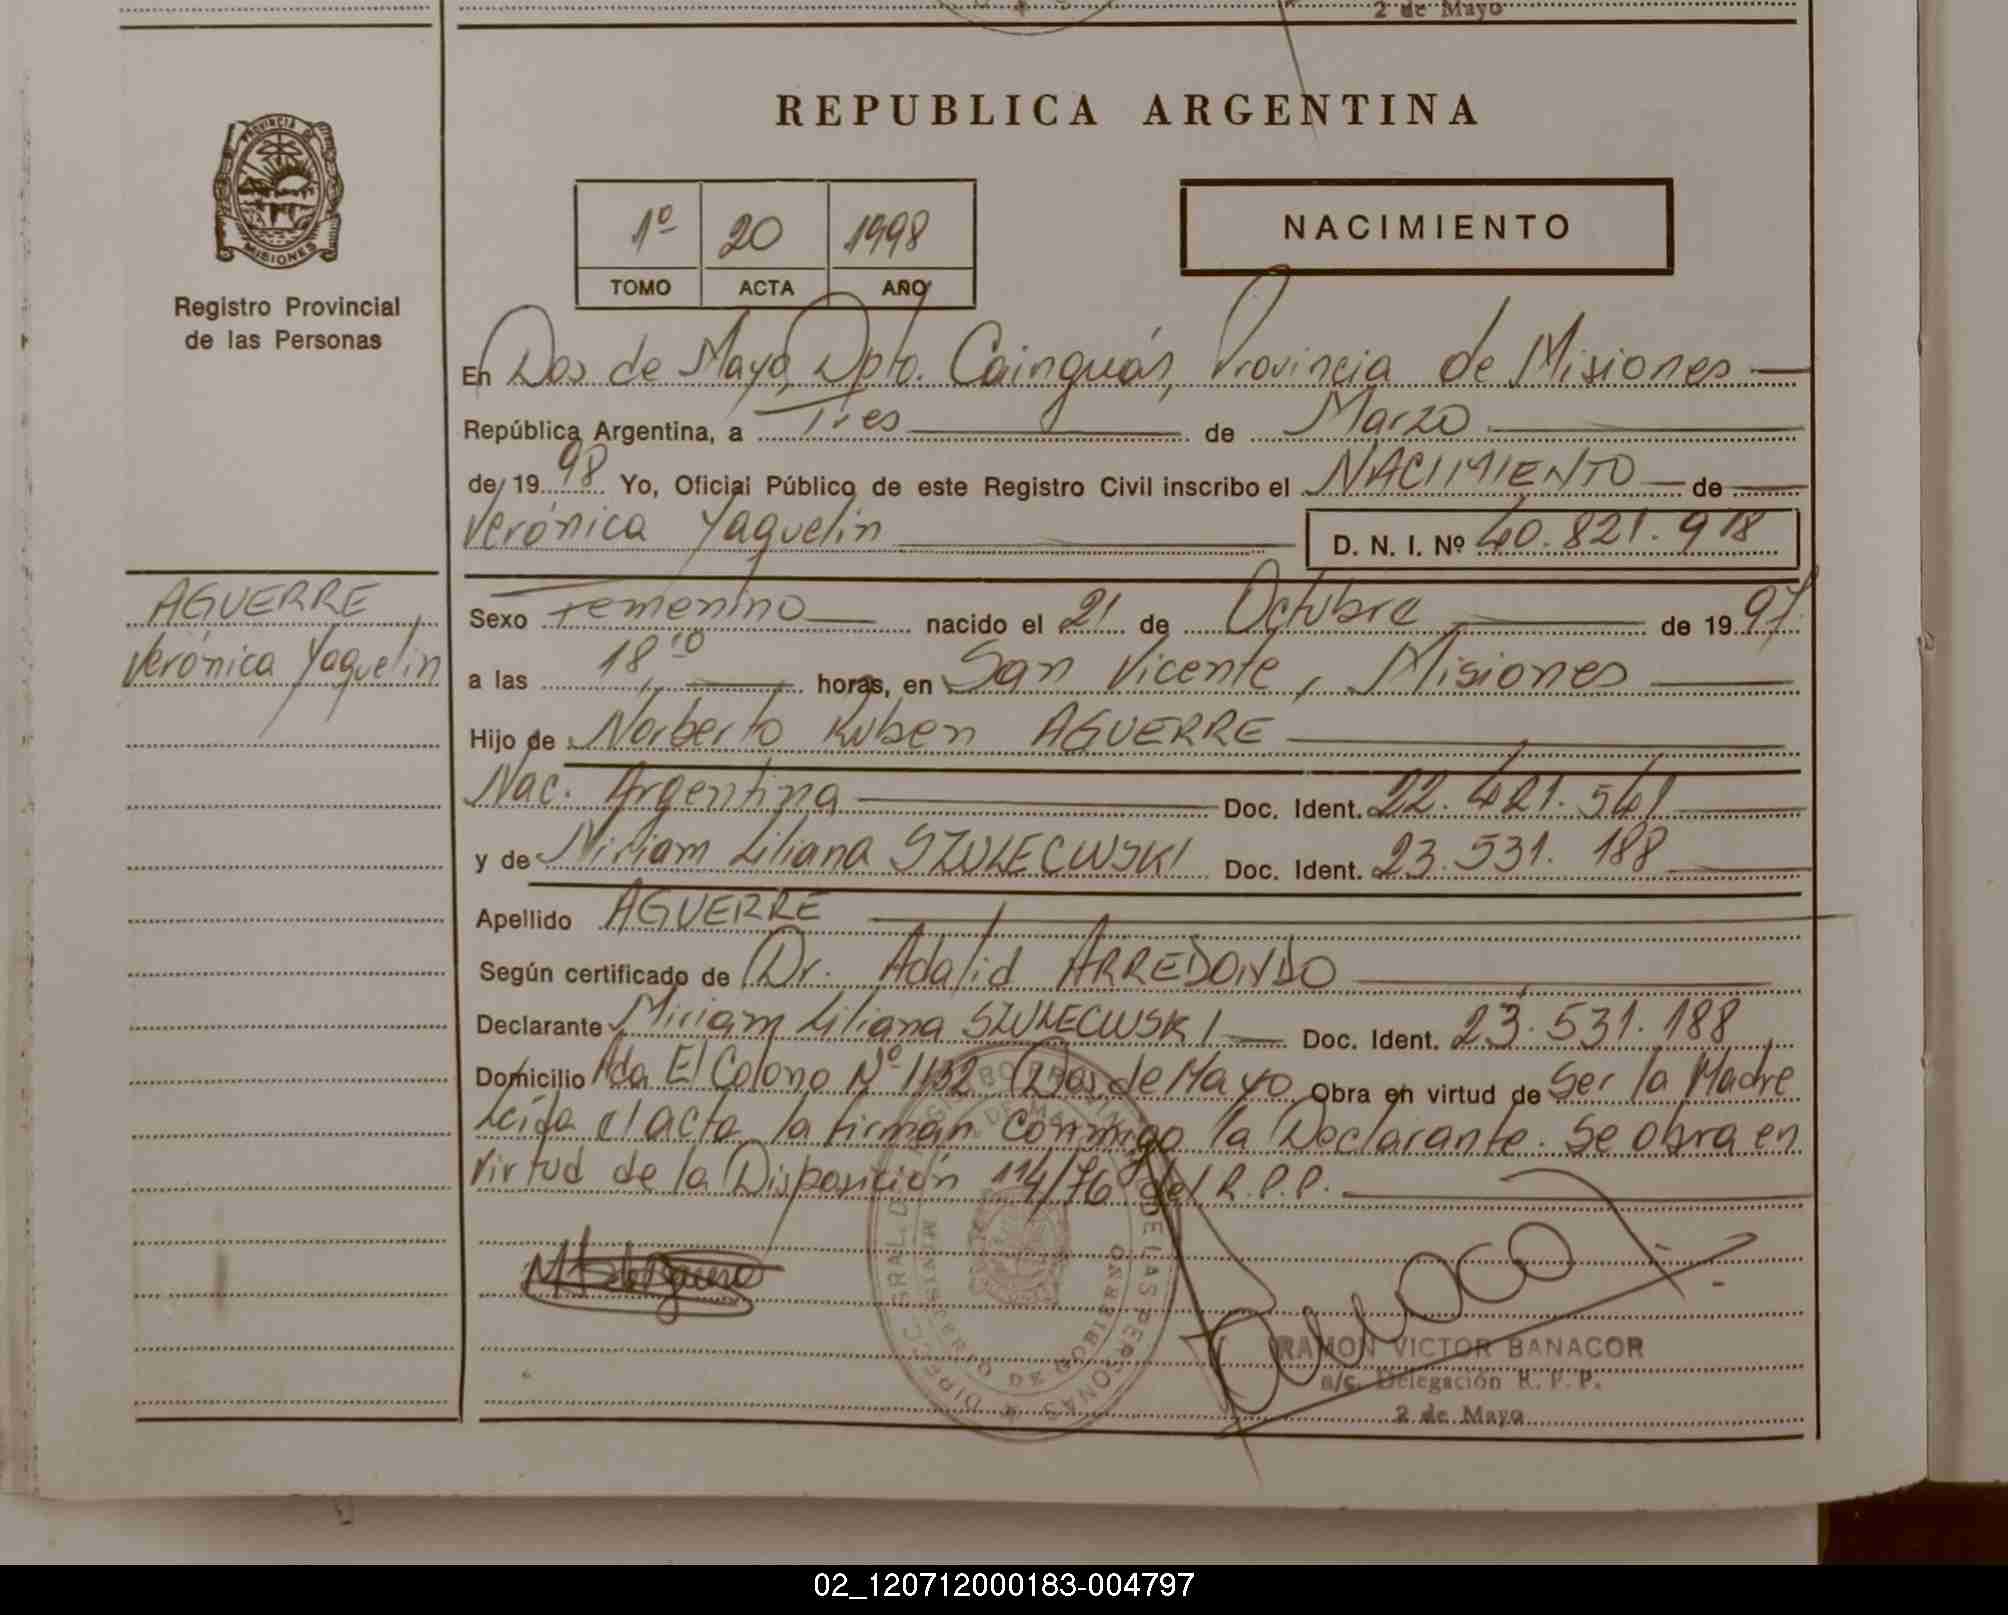 2 de Mayo
REPUBLICA ARGENTINA
PROVINCIA DE
MISIONES
Registro Provincial
de las Personas
1º 20 1998
TOMO ACTA AÑO
NACIMIENTO
En Dos de Mayo, Dpto. Cainguás, Provincia de Misiones
República Argentina, a Tres de Marzo
de 1998 Yo, Oficial Público de este Registro Civil inscribo el NACIMIENTO de
Verónica Yaquelin D. N. I. Nº 40.821.918
AGUERRE
Verónica Yaquelin
Sexo Femenino nacido el 21 de Octubre de 1997
a las 18¹⁰ horas, en San Vicente, Misiones
Hijo de Norberto Ruben AGUERRE
Nac. Argentina Doc. Ident. 22.421.541
y de Miriam Liliana SZULECWSKI Doc. Ident. 23.531.188
Apellido AGUERRE
Según certificado de Dr. Adalid ARREDONDO
Declarante Miriam Liliana SZULECWSKI Doc. Ident. 23.531.188
Domicilio Ada El Colono Nº 1132 Dos de Mayo Obra en virtud de Ser la Madre
Leída el acta la firman conmigo la Declarante. Se obra en
virtud de la Disposición 114/76 del R.P.P.
RAMON VICTOR BANACOR
a/c. Delegación R. P. P.
2 de Mayo
02_120712000183-004797